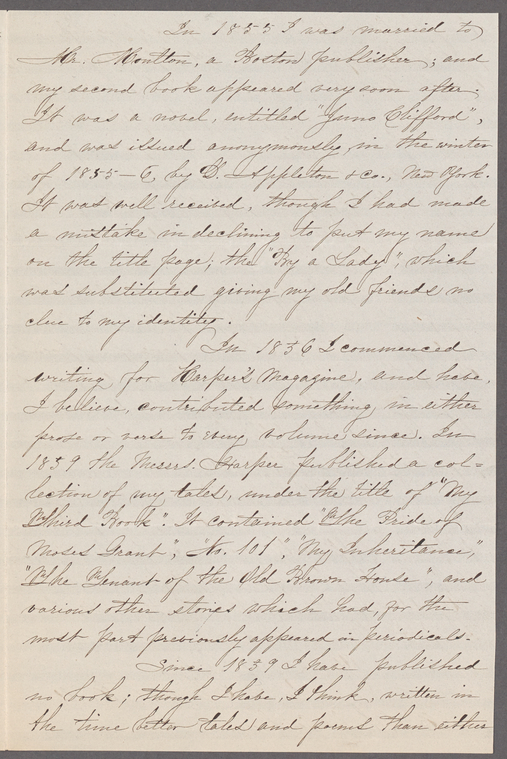 In 1855 I was married to
Mr. Moulton, a Boston publisher; and
my second book appeared very soon after.
It was a novel, entitled "Juno Clifford",
and was issued anonymously, in the winter
of 1855—6, by D. Appleton & co., New York.
It was well received, though I had made
a mistake in declining to put my name
on the title page; the "By a Lady", which
was substituted giving my old friends no
clue to my identity.
In 1856 I commenced
writing for Harper's Magazine, and have,
I believe, contributed something in either
prose or verse to every volume since. In
1859 the Messrs. Harper published a col=
lection of my tales, under the title of "My
Third Book". It contained "The Pride of
Moses Grant"; "No. 101", "My Inheritance,"
"The Tenant of the Old Brown House", and
various other stories which had, for the
most part previously appeared in periodicals.
Since 1859 I have published
no book; though I have, I think, written in
the time better tales and poems than either